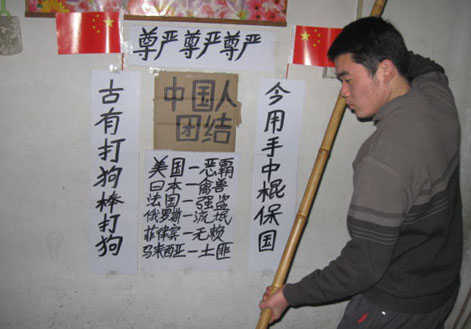 尊严尊严尊严
古有打狗棒打狗
中国人
团结
美国—恶霸
日本—禽兽
法国—强盗
俄罗斯—流氓
菲律宾—无赖
马来西亚—土匪
今用手中棍保国